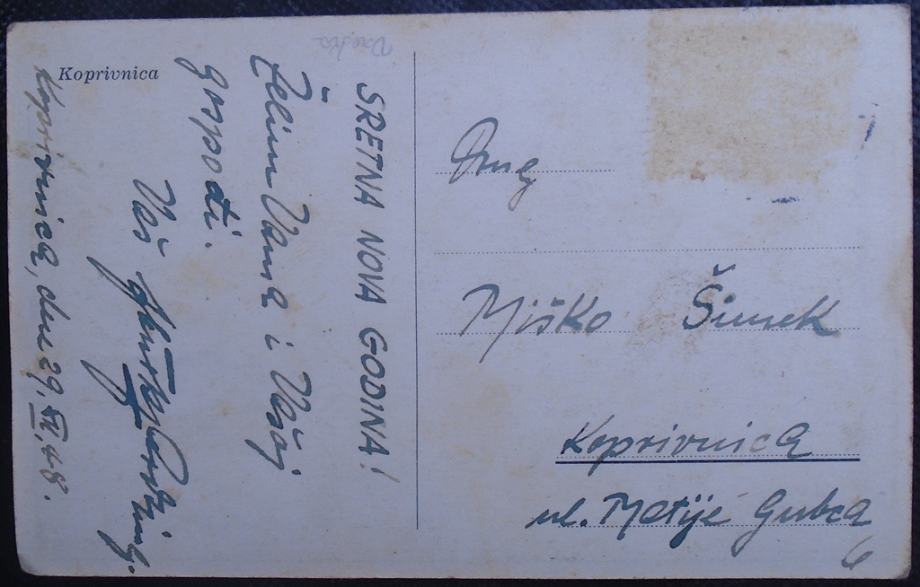 Koprivnica
SRETNA NOVA GODINA!
želim Vama i Vašoj
gospođi.
Vaš
Koprivnica, dne 29, XII, 48.
Drug
Miško Šimek
Koprivnica
ul. Matije Gubca
6